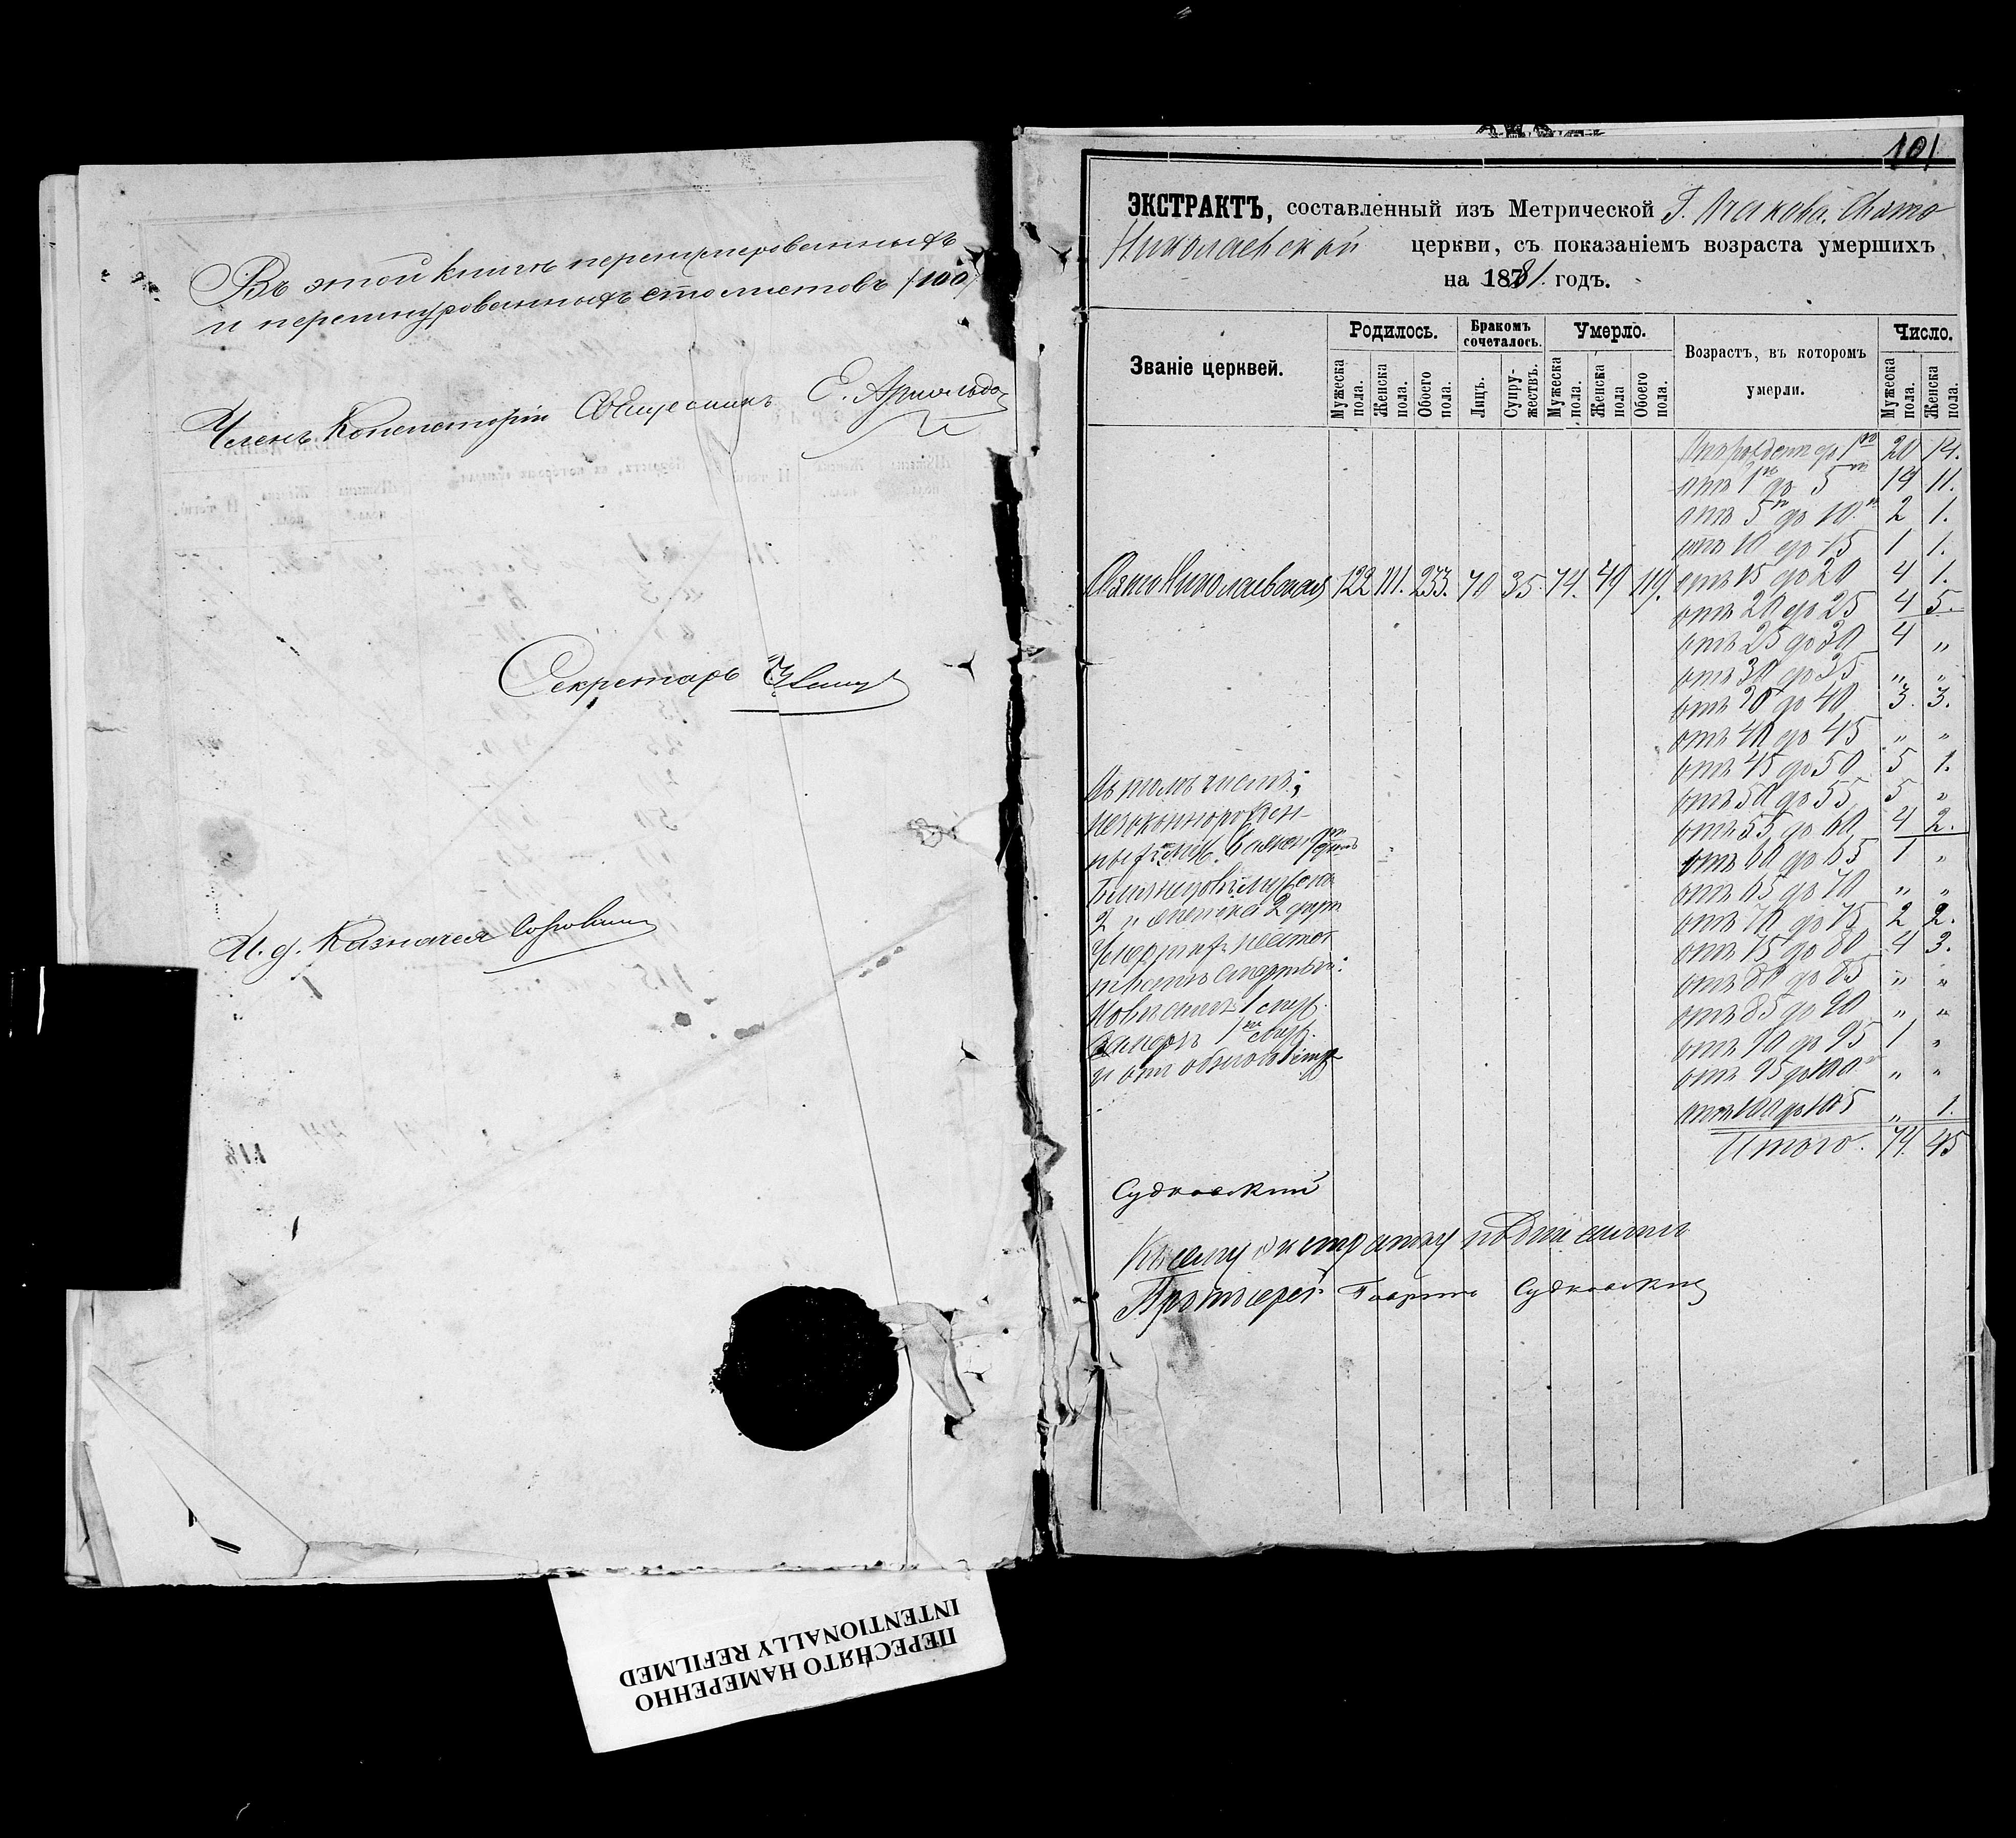 Въ этой книгѣ перенумерованныхъ
и перешнурованныхъ сто листовъ (100)
Членъ Консисторіи Священникъ Е. Арнольдо
Секретарь
И. д. Казначея
ПЕРЕСНЯТО НАМЕРЕННО
INTENTIONALLY REFILMED
101
ЭКСТРАКТЪ, составленный изъ Метрической Г. Очакова. Свято
Николаевской церкви, съ показаніемъ возраста умершихъ
на 1881. годъ.
Званіе церквей. Родилось. Бракомъ сочеталось. Умерло. Возрастъ, въ которомъ умерли. Число.
Мужеска пола. Женска пола. Обоего пола. Лицъ. Супружествъ. Мужеска пола. Женска пола Обоего пола. Мужеска пола. Женска пола
Отъ рожденія до 1го 20 14.
отъ 1го до 5ти 19 11.
отъ 5ти до 10ти 2 1.
отъ 10 до 15 1 1.
Свято Николаевская 122 111. 233. 70 35. 74. 49 119. отъ 15 до 20 4 1.
отъ 20 до 25 4 5.
отъ 25 до 30 4 „
отъ 30 до 35 „ „
отъ 30 до 40 3. 3.
отъ 40 до 45 „ „
отъ 45 до 50 5 1.
отъ 50 до 55 5 „
отъ 55 до 60 4 2.
отъ 60 до 65 1 „
отъ 65 до 70 „ „
отъ 70 до 75 2 2.
отъ 75 до 80 4 3.
отъ 80 до 85 „ „
отъ 85 до 90 „ „
отъ 90 до 95 1 „
отъ 95 до 100 „ „
отъ 100 до 105 „ 1.
Итого. 74. 45
Въ томъ числѣ:
незаконнорожден-
ныхъ
Близнецовъ мужска
2 и женска 2
Умершихъ
смертью:
1
1
и
Судковскій
Къ сему экстракту подписались
Протоіерей Гавріилъ Судковскій